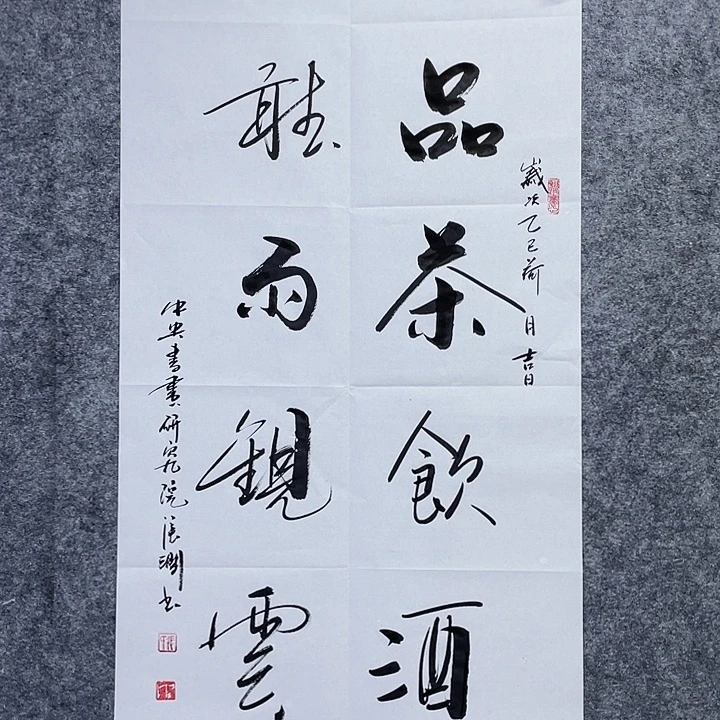 歲次乙巳荷月吉日
品茶飲酒
聽雨觀雲
中央書畫研究院張淵書